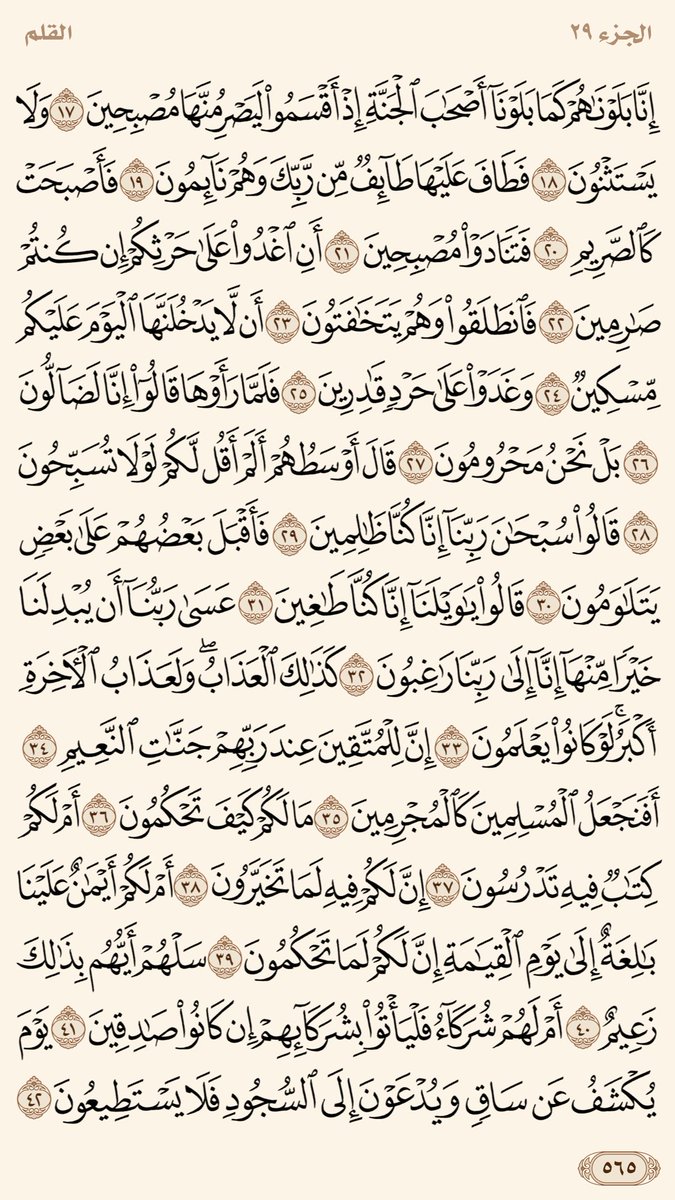 الجزء ٢٩
القلم
إِنَّا بَلَوْنَٰهُمْ كَمَا بَلَوْنَآ أَصْحَٰبَ ٱلْجَنَّةِ إِذْ أَقْسَمُوا۟ لَيَصْرِمُنَّهَا مُصْبِحِينَ ١٧ وَلَا
يَسْتَثْنُونَ ١٨ فَطَافَ عَلَيْهَا طَآئِفٌ مِّن رَّبِّكَ وَهُمْ نَآئِمُونَ ١٩ فَأَصْبَحَتْ
كَٱلصَّرِيمِ ٢٠ فَتَنَادَوْا۟ مُصْبِحِينَ ٢١ أَنِ ٱغْدُوا۟ عَلَىٰ حَرْثِكُمْ إِن كُنتُمْ
صَٰرِمِينَ ٢٢ فَٱنطَلَقُوا۟ وَهُمْ يَتَخَٰفَتُونَ ٢٣ أَن لَّا يَدْخُلَنَّهَا ٱلْيَوْمَ عَلَيْكُم
مِّسْكِينٌ ٢٤ وَغَدَوْا۟ عَلَىٰ حَرْدٍ قَٰدِرِينَ ٢٥ فَلَمَّا رَأَوْهَا قَالُوٓا۟ إِنَّا لَضَآلُّونَ
٢٦ بَلْ نَحْنُ مَحْرُومُونَ ٢٧ قَالَ أَوْسَطُهُمْ أَلَمْ أَقُل لَّكُمْ لَوْلَا تُسَبِّحُونَ
٢٨ قَالُوا۟ سُبْحَٰنَ رَبِّنَآ إِنَّا كُنَّا ظَٰلِمِينَ ٢٩ فَأَقْبَلَ بَعْضُهُمْ عَلَىٰ بَعْضٍ
يَتَلَٰوَمُونَ ٣٠ قَالُوا۟ يَٰوَيْلَنَآ إِنَّا كُنَّا طَٰغِينَ ٣١ عَسَىٰ رَبُّنَآ أَن يُبْدِلَنَا
خَيْرًا مِّنْهَآ إِنَّآ إِلَىٰ رَبِّنَا رَٰغِبُونَ ٣٢ كَذَٰلِكَ ٱلْعَذَابُ ۖ وَلَعَذَابُ ٱلْءَاخِرَةِ
أَكْبَرُ ۚ لَوْ كَانُوا۟ يَعْلَمُونَ ٣٣ إِنَّ لِلْمُتَّقِينَ عِندَ رَبِّهِمْ جَنَّٰتِ ٱلنَّعِيمِ ٣٤
أَفَنَجْعَلُ ٱلْمُسْلِمِينَ كَٱلْمُجْرِمِينَ ٣٥ مَا لَكُمْ كَيْفَ تَحْكُمُونَ ٣٦ أَمْ لَكُمْ
كِتَٰبٌ فِيهِ تَدْرُسُونَ ٣٧ إِنَّ لَكُمْ فِيهِ لَمَا تَخَيَّرُونَ ٣٨ أَمْ لَكُمْ أَيْمَٰنٌ عَلَيْنَا
بَٰلِغَةٌ إِلَىٰ يَوْمِ ٱلْقِيَٰمَةِ إِنَّ لَكُمْ لَمَا تَحْكُمُونَ ٣٩ سَلْهُمْ أَيُّهُم بِذَٰلِكَ
زَعِيمٌ ٤٠ أَمْ لَهُمْ شُرَكَآءُ فَلْيَأْتُوا۟ بِشُرَكَآئِهِمْ إِن كَانُوا۟ صَٰدِقِينَ ٤١ يَوْمَ
يُكْشَفُ عَن سَاقٍ وَيُدْعَوْنَ إِلَى ٱلسُّجُودِ فَلَا يَسْتَطِيعُونَ ٤٢
٥٦٥